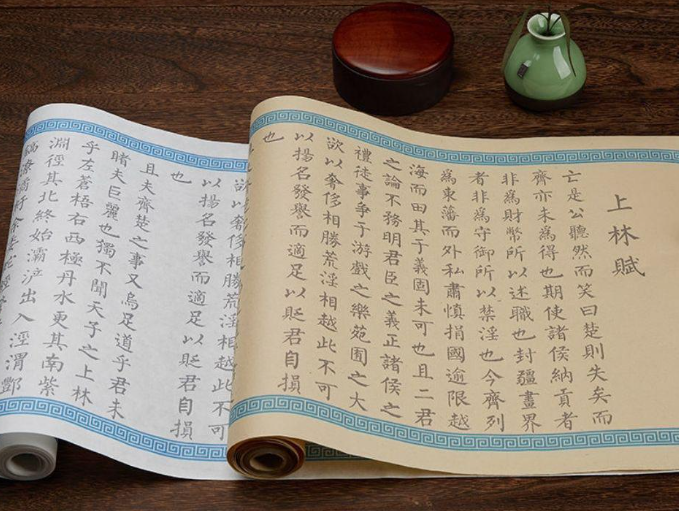 上林賦
亡是公聽然而笑曰楚則失矣而
齊亦未為得也期使諸侯納貢者
非為財幣所以述職也封疆畫界
者非為守御所以禁淫也今齊列
為東藩而外私肅慎捐國逾限越
海而田其于義固未可也且二君
之論不務明君臣之義正諸侯之
禮徒事爭于游戲之樂苑囿之大
欲以奢侈相勝荒淫相越此不可
以揚名發譽而適足以貶君自損
也
欲以奢侈相勝荒淫相越此不可
以揚名發譽而適足以貶君自損
也
且夫齊楚之事又烏足道乎君未
睹夫巨麗也獨不聞天子之上林
乎左蒼梧右西極丹水更其南紫
淵徑其北終始灞滻出入涇渭酆